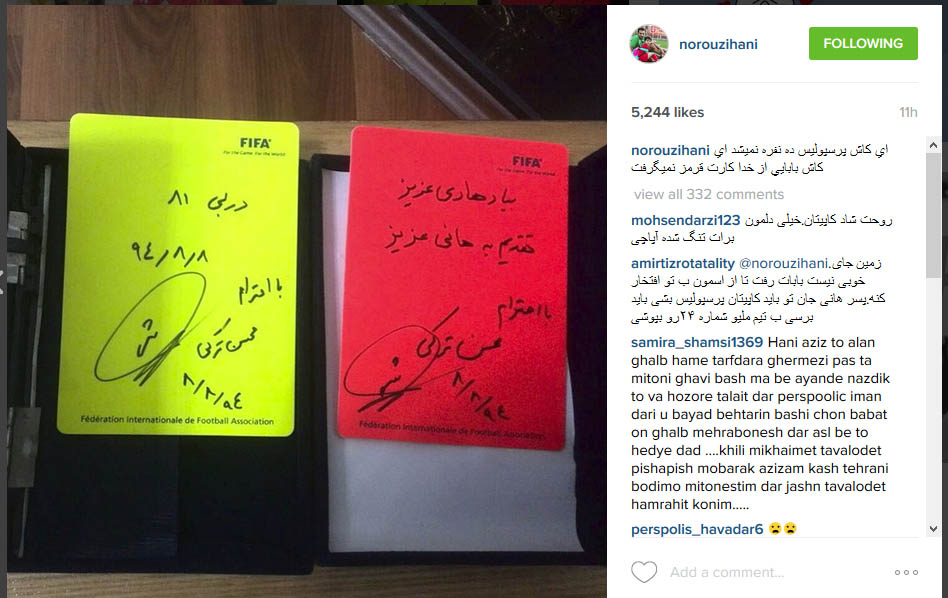 FIFA
For the Game. For the World.
دربی ۸۱
۹٤/۸/۸
با احترام
محسن ترکی
۸/۸/۹٤
Fédération Internationale de Football Association
FIFA
For the Game. For the World.
بیاد هادی عزیز
تقدیم به هانی عزیز
با احترام
محسن ترکی
۸/۸/۹٤
Fédération Internationale de Football Association
norouzihani
FOLLOWING
5,244 likes
11h
norouzihani اي كاش پرسپوليس ده نفره نميشد اي
كاش بابايي از خدا كارت قرمز نميگرفت
view all 332 comments
mohsendarzi123 روحت شاد کاپیتان.خیلی دلمون
برات تنگ شده آپاچی
amirtizrotatality @norouzihani زمین جای.
خوبی نیست بابات رفت تا از اسمون ب تو افتخار
کنه.پسر هانی جان تو باید کاپیتان پرسپولیس بشی باید
برسی ب تیم ملیو شماره ۲۴رو بپوشی
samira_shamsi1369 Hani aziz to alan
ghalb hame tarfdara ghermezi pas ta
mitoni ghavi bash ma be ayande nazdik
to va hozore talait dar perspoolic iman
dari u bayad behtarin bashi chon babat
on ghalb mehrabonesh dar asl be to
hedye dad ....khili mikhaimet tavalodet
pishapish mobarak azizam kash tehrani
bodimo mitonestim dar jashn tavalodet
hamrahit konim.....
perspolis_havadar6 😧😧
Add a comment...